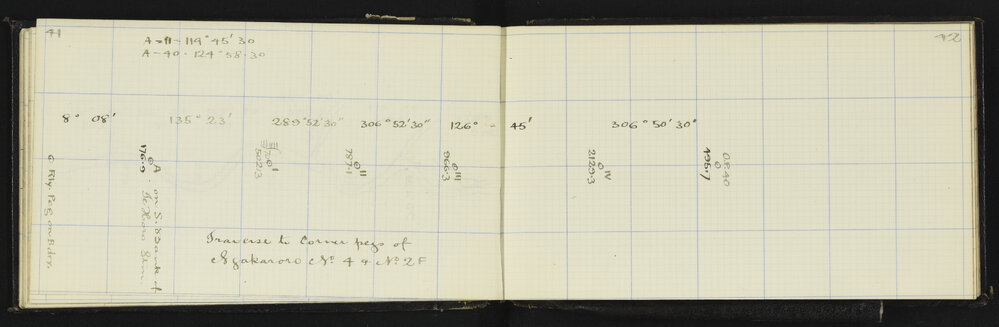 41
42
A-11-119° 45' 30
A-40-124° 58' 30
8° 08'
135° 23'
289° 52' 30"
306° 52' 30"
126° - 45'
306° 50' 30"
⊙ Rly. Peg on Bdry.
⊙ A on S. Bank of
176.9
⊙ I
502.3
⊙ II
787.1
⊙ III
966.3
⊙ IV
2129.3
O.P. 40
⊙
495.7
Traverse to Corner pegs of
Ngakaroro No. 4 & No. 2F